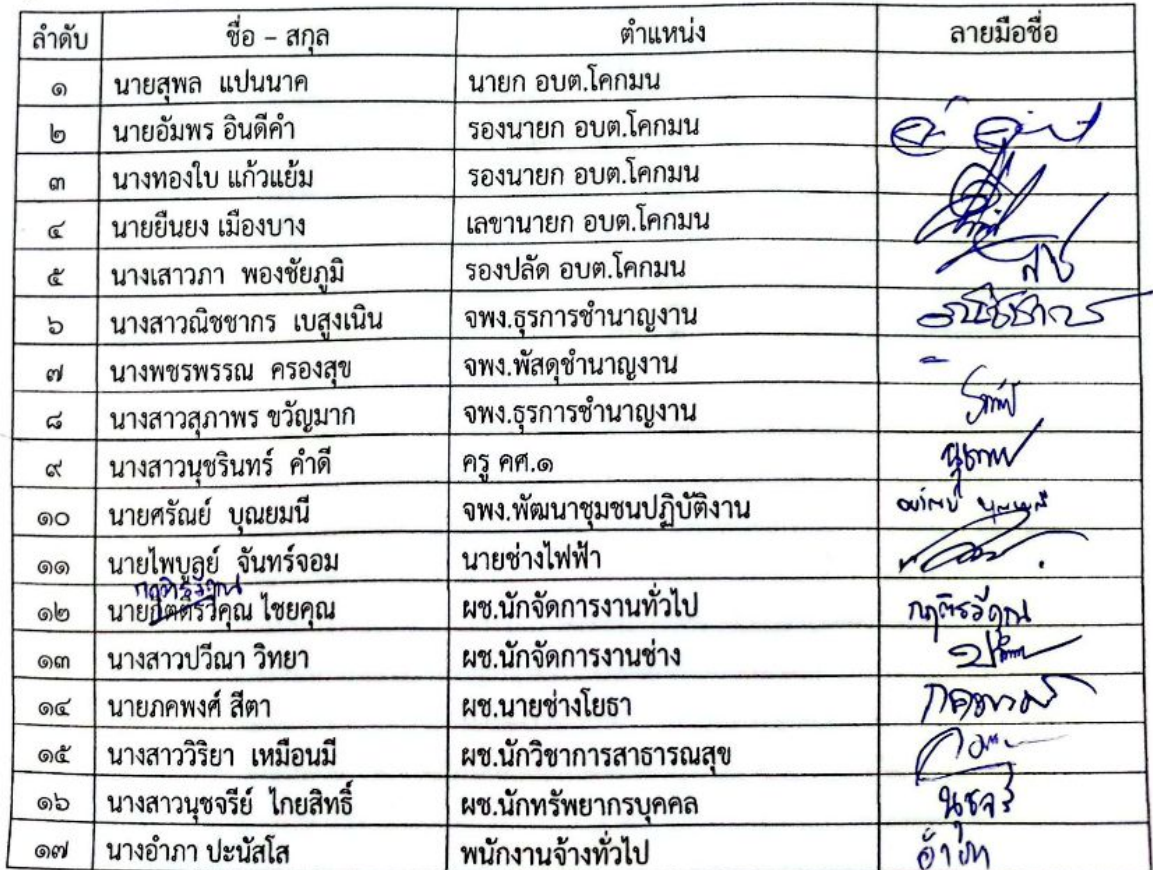 ลำดับ ชื่อ – สกุล ตำแหน่ง ลายมือชื่อ
๑ นายสุพล แปนนาค นายก อบต.โคกมน
๒ นายอัมพร อินดีคำ รองนายก อบต.โคกมน
๓ นางทองใบ แก้วแย้ม รองนายก อบต.โคกมน
๔ นายยืนยง เมืองบาง เลขานายก อบต.โคกมน
๕ นางเสาวภา พองชัยภูมิ รองปลัด อบต.โคกมน
๖ นางสาวณิชชากร เบสูงเนิน จพง.ธุรการชำนาญงาน
๗ นางพชรพรรณ ครองสุข จพง.พัสดุชำนาญงาน -
๘ นางสาวสุภาพร ขวัญมาก จพง.ธุรการชำนาญงาน
๙ นางสาวนุชรินทร์ คำดี ครู คศ.๑
๑๐ นายศรัณย์ บุณยมนี จพง.พัฒนาชุมชนปฏิบัติงาน
๑๑ นายไพบูลย์ จันทร์จอม นายช่างไฟฟ้า
๑๒ นายกิตติรวิคุณ ไชยคุณ ผช.นักจัดการงานทั่วไป
๑๓ นางสาวปวีณา วิทยา ผช.นักจัดการงานช่าง
๑๔ นายภคพงศ์ สีตา ผช.นายช่างโยธา
๑๕ นางสาววิริยา เหมือนมี ผช.นักวิชาการสาธารณสุข
๑๖ นางสาวนุชจรีย์ ไกยสิทธิ์ ผช.นักทรัพยากรบุคคล นุชจรี
๑๗ นางอำภา ปะนัสโส พนักงานจ้างทั่วไป อำภา